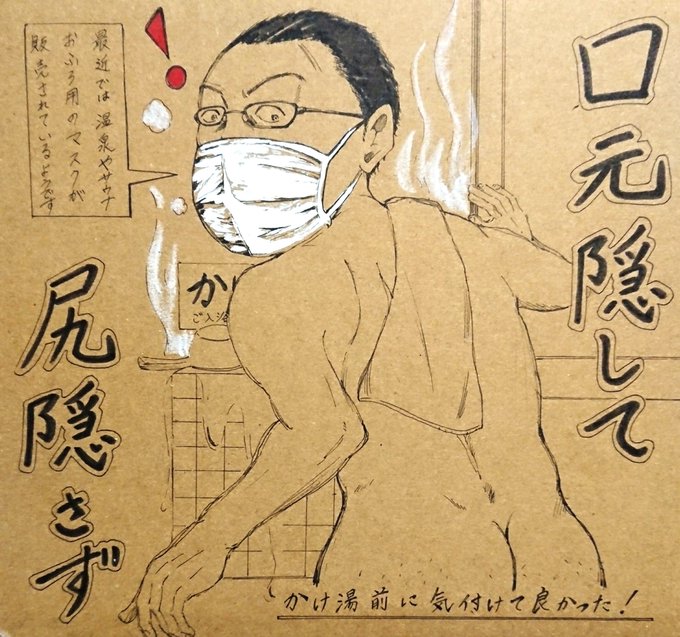 口元隠して
最近では温泉やサウナ
おふろ用のマスクが
販売されているようです
！
か
ご入浴
尻隠さず
かけ湯前に気付けて良かった！